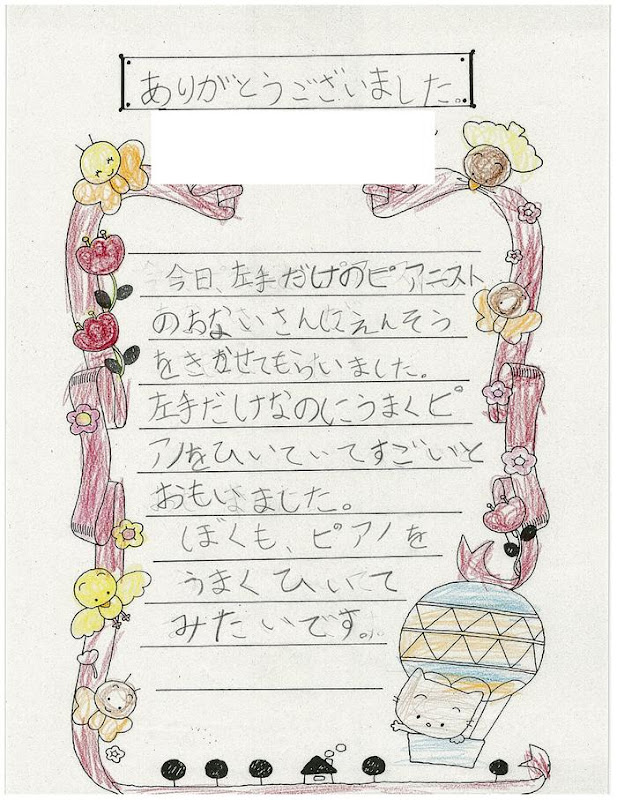 ありがとうございました。
今日、左手だけのピアニスト
のちないさんにえんそう
をきかせてもらいました。
左手だけなのにうまくピ
アノをひいていてすごいと
おもいました。
ぼくも、ピアノを
うまくひいて
みたいです。